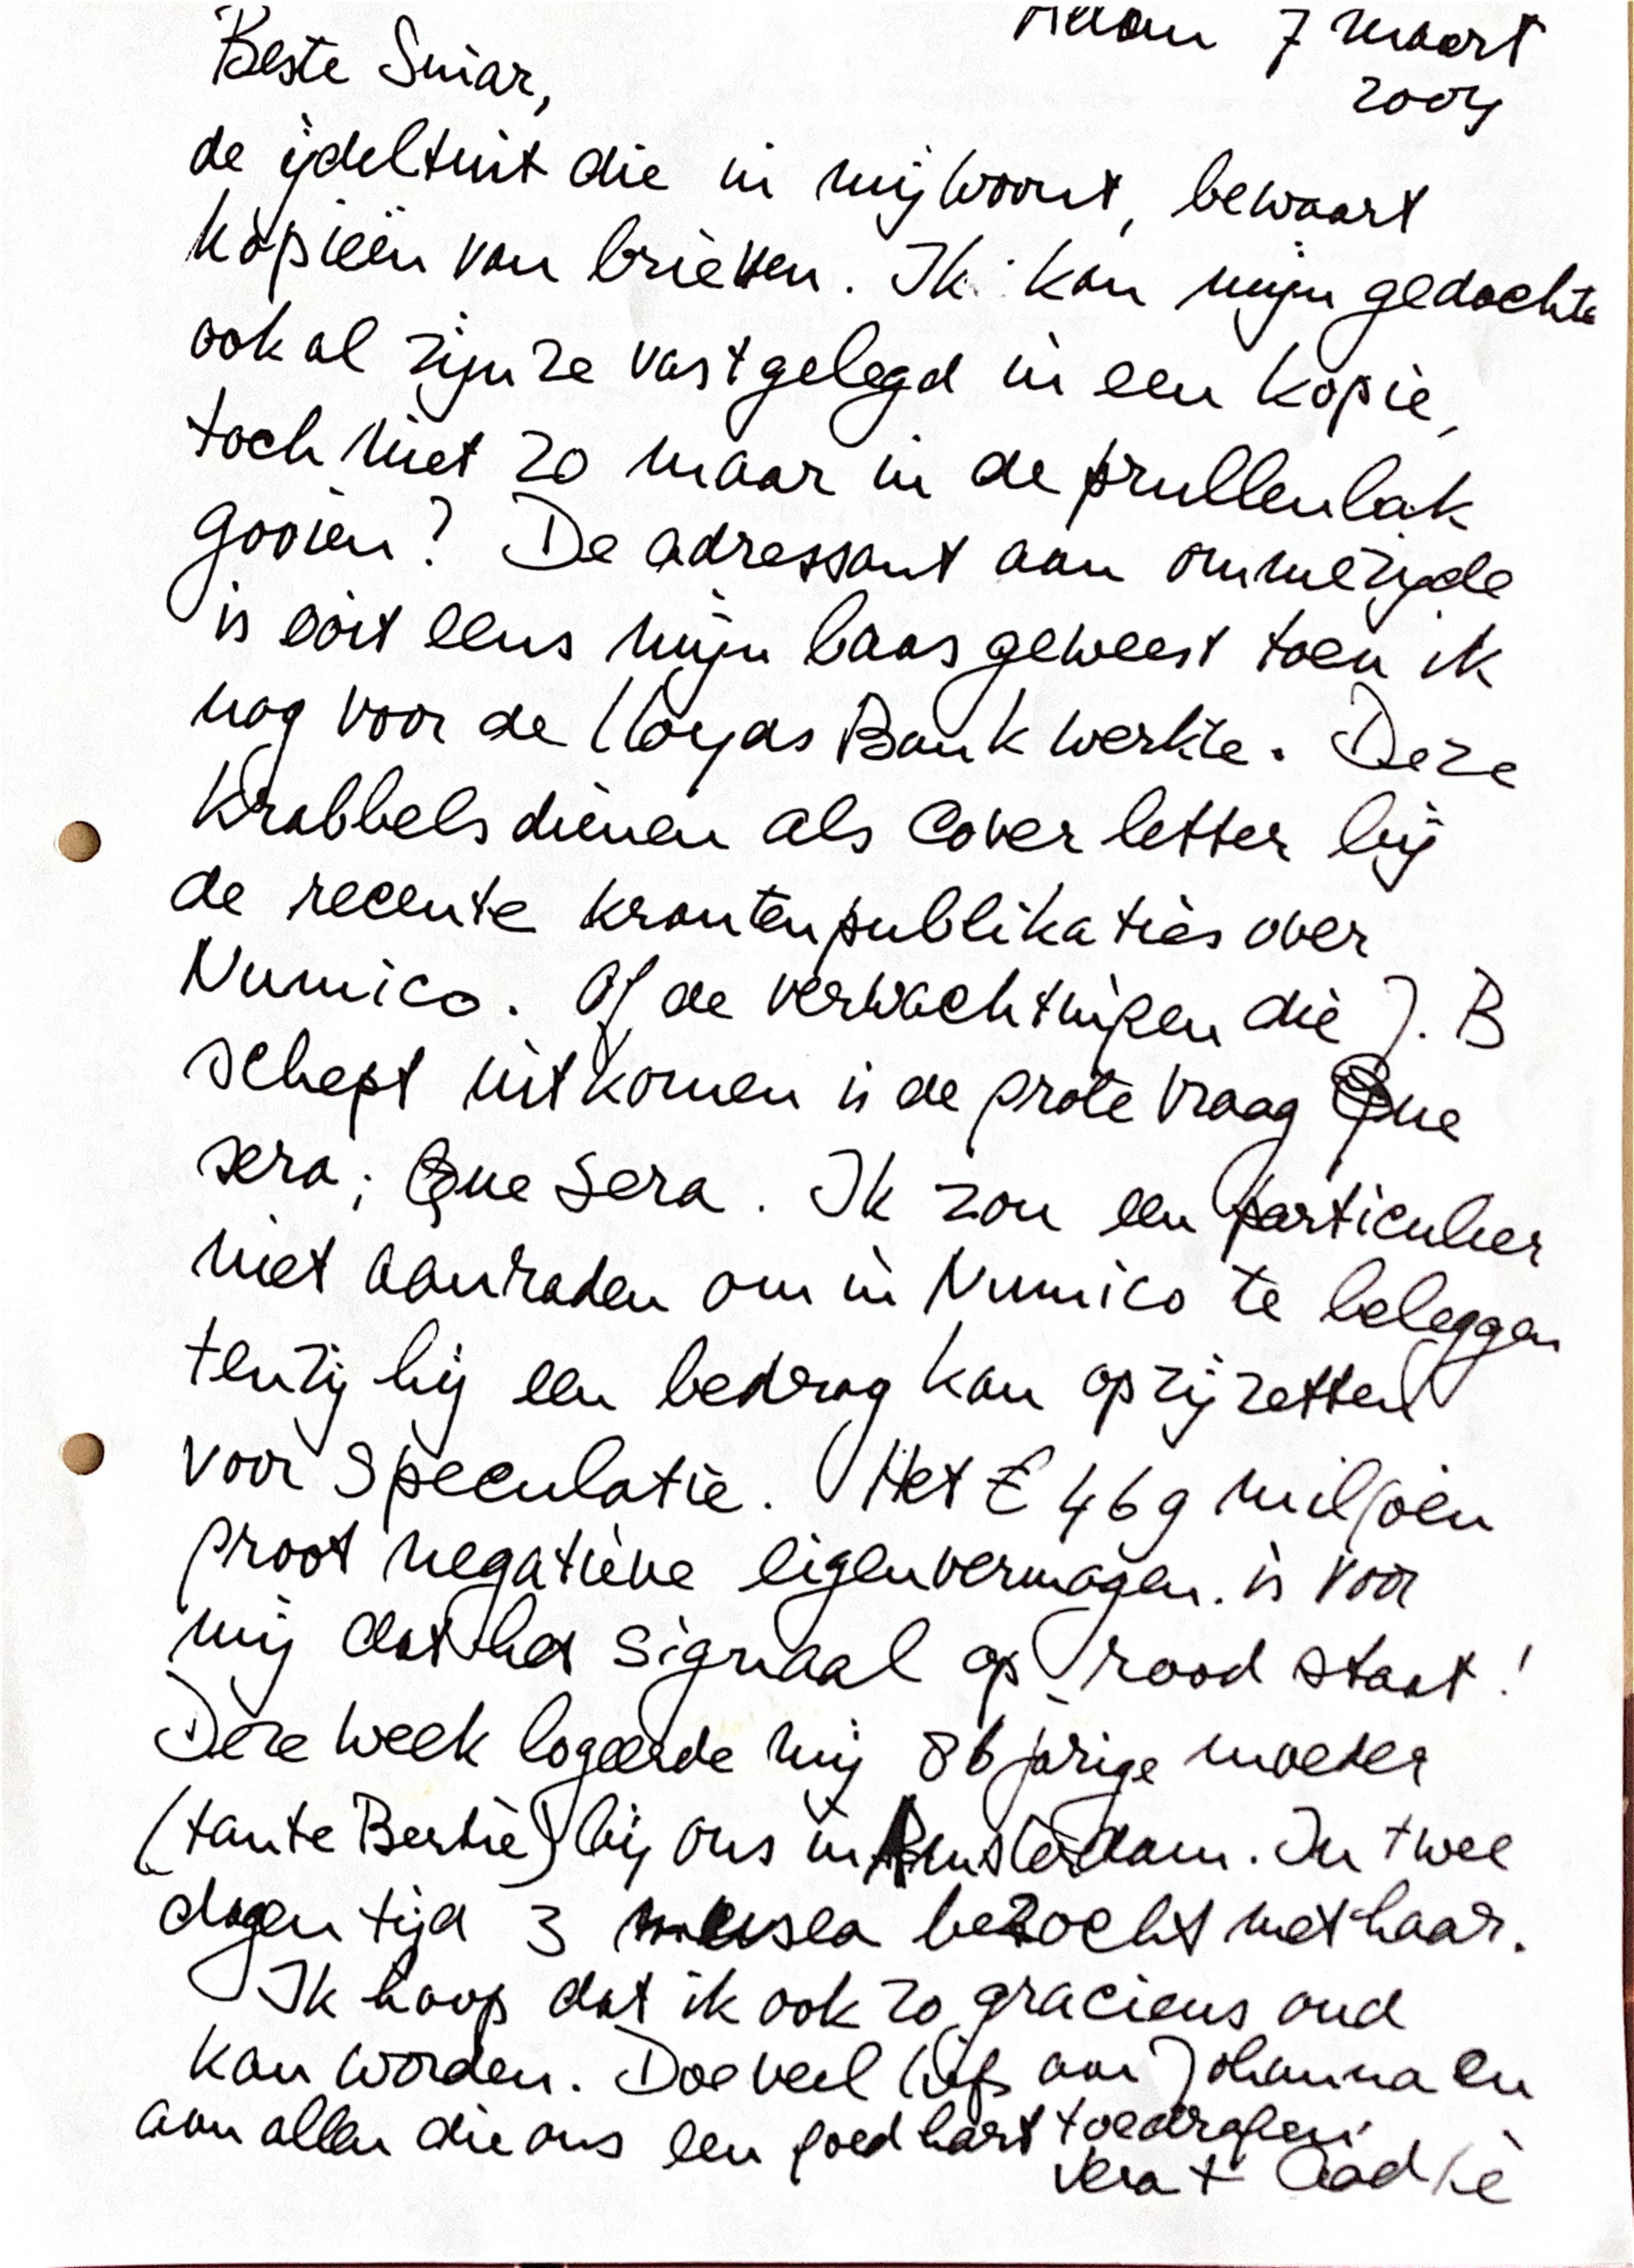 7 maart
2004
Beste Sniar,
de ijdeltuit die in mij woont, bewaart
kopieën van brieven. Ik kan mijn gedachte
ook al zijn ze vastgelegd in een kopie,
toch niet zo maar in de prullenbak
gooien? De adressant aan ommezijde
is ooit eens mijn baas geweest toen ik
nog voor de Lloyds Bank werkte. Deze
krabbels dienen als Cover letter bij
de recente krantenpublikaties over
Numico. Of de verwachtingen die J. B
schept uitkomen is de grote vraag Que
sera; Que sera. Ik zou een particulier
niet aanraden om in Numico te beleggen
tenzij hij een bedrag kan opzij zetten
voor speculatie. Het € 469 miljoen
groot negatieve eigenvermogen. is voor
mij dat het signaal op rood staat!
Deze week logeerde mij 86 jarige moeder
(tante Bertie) bij ons in Amsterdam. In twee
dagen tijd 3 musea bezocht met haar.
Ik hoop dat ik ook zo gracieus oud
kan worden. Doe veel liefs aan Johanna en
aan allen die ons een goed hart toedragen.
Vera +